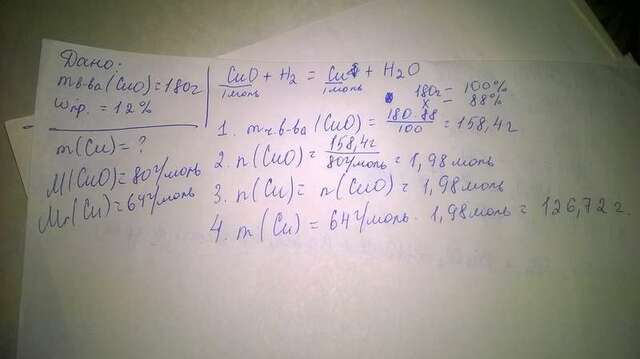 Дано:
m в-ва (CuO) = 180г
wпр. = 12%
m(Cu) = ?
M(CuO) = 80 г/моль
Mr(Cu) = 64 г/моль
CuO + H₂ = Cu + H₂O
1 моль 1 моль
180г – 100%
x – 88%
1. m ч. в-ва (CuO) = 180·88/100 = 158,4г
2. n(CuO) = 158,4г/80 г/моль = 1,98 моль
3. n(Cu) = n(CuO) = 1,98 моль
4. m(Cu) = 64 г/моль · 1,98 моль = 126,72 г.